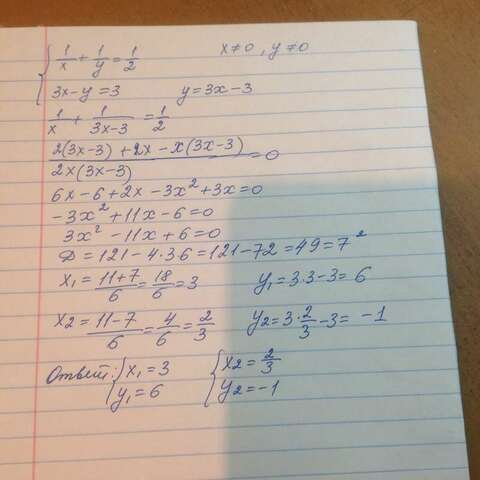 { 1/x + 1/y = 1/2 x ≠ 0, y ≠ 0
3x - y = 3 y = 3x - 3
1/x + 1/(3x-3) = 1/2
(2(3x-3) + 2x - x(3x-3)) / (2x(3x-3)) = 0
6x - 6 + 2x - 3x² + 3x = 0
-3x² + 11x - 6 = 0
3x² - 11x + 6 = 0
D = 121 - 4·3·6 = 121 - 72 = 49 = 7²
x₁ = (11+7)/6 = 18/6 = 3 y₁ = 3·3 - 3 = 6
x₂ = (11-7)/6 = 4/6 = 2/3 y₂ = 3·2/3 - 3 = -1
Ответ: { x₁ = 3 { x₂ = 2/3
y₁ = 6 y₂ = -1